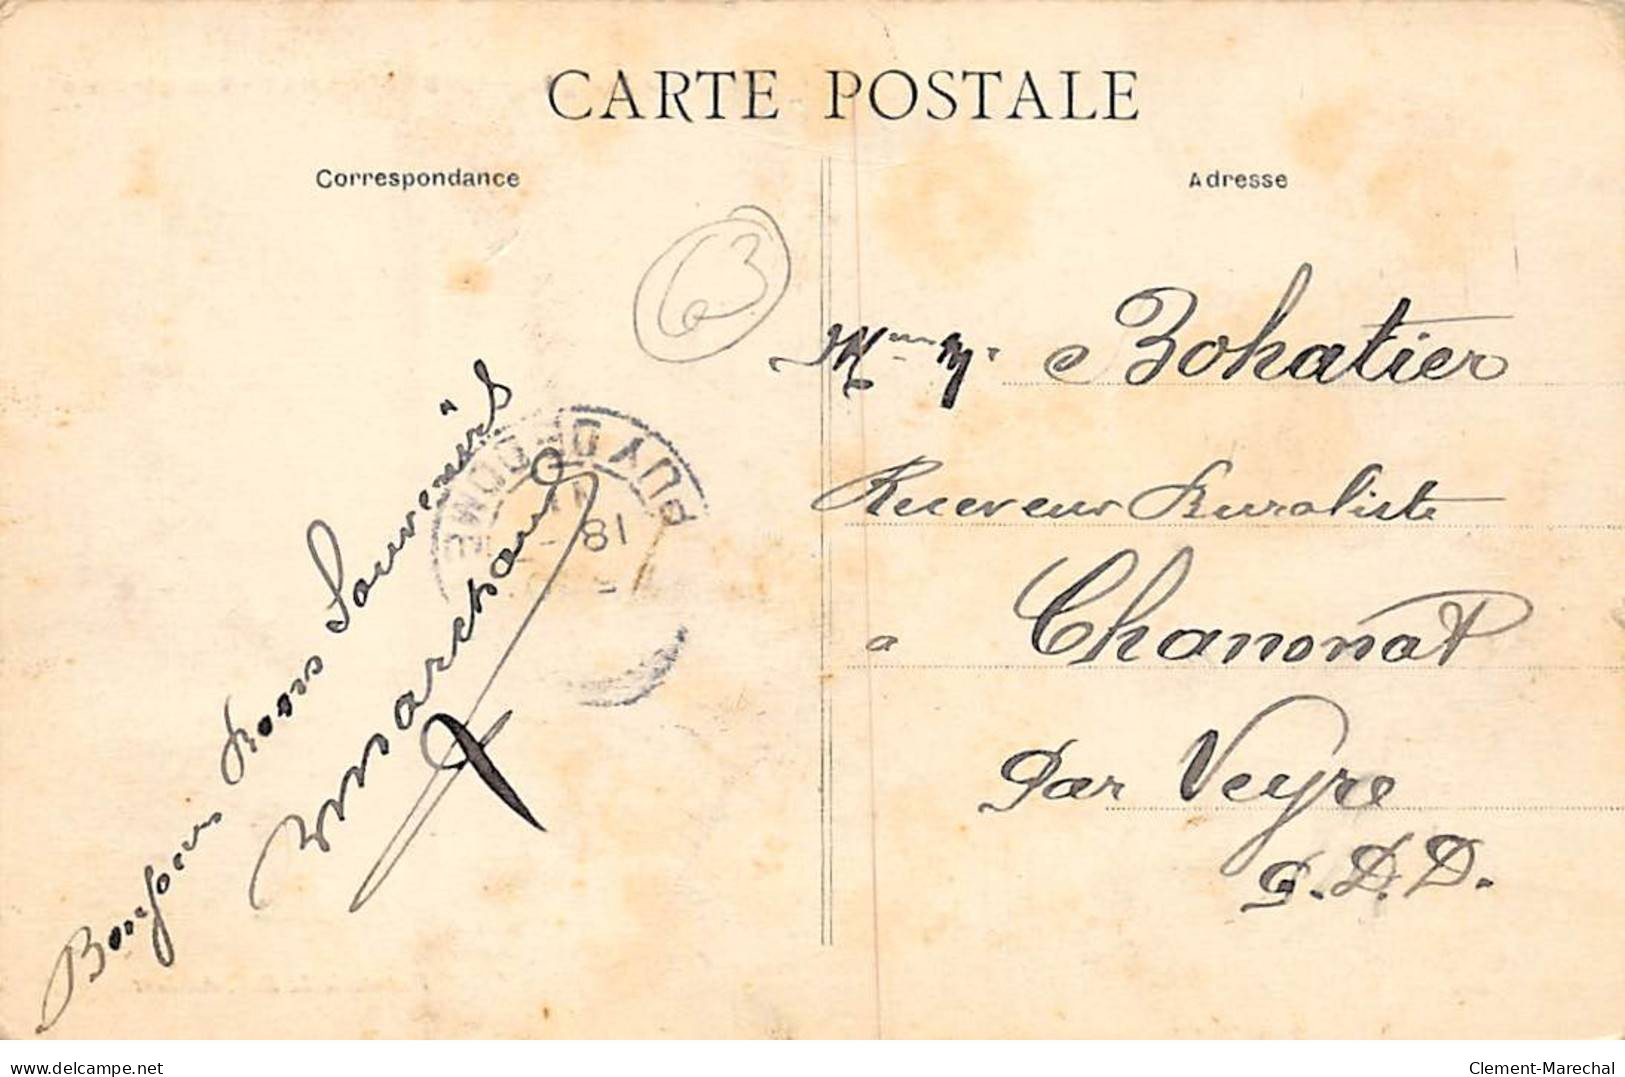 CARTE POSTALE
Correspondance
Adresse
63
Bonjour Bons Souvenirs
Marchand
Bohatier
Receveur Buraliste
a Chanonat
Par Veyre
P. D. D.
PUY DE DOME
18
delcampe.net
Clement-Marechal